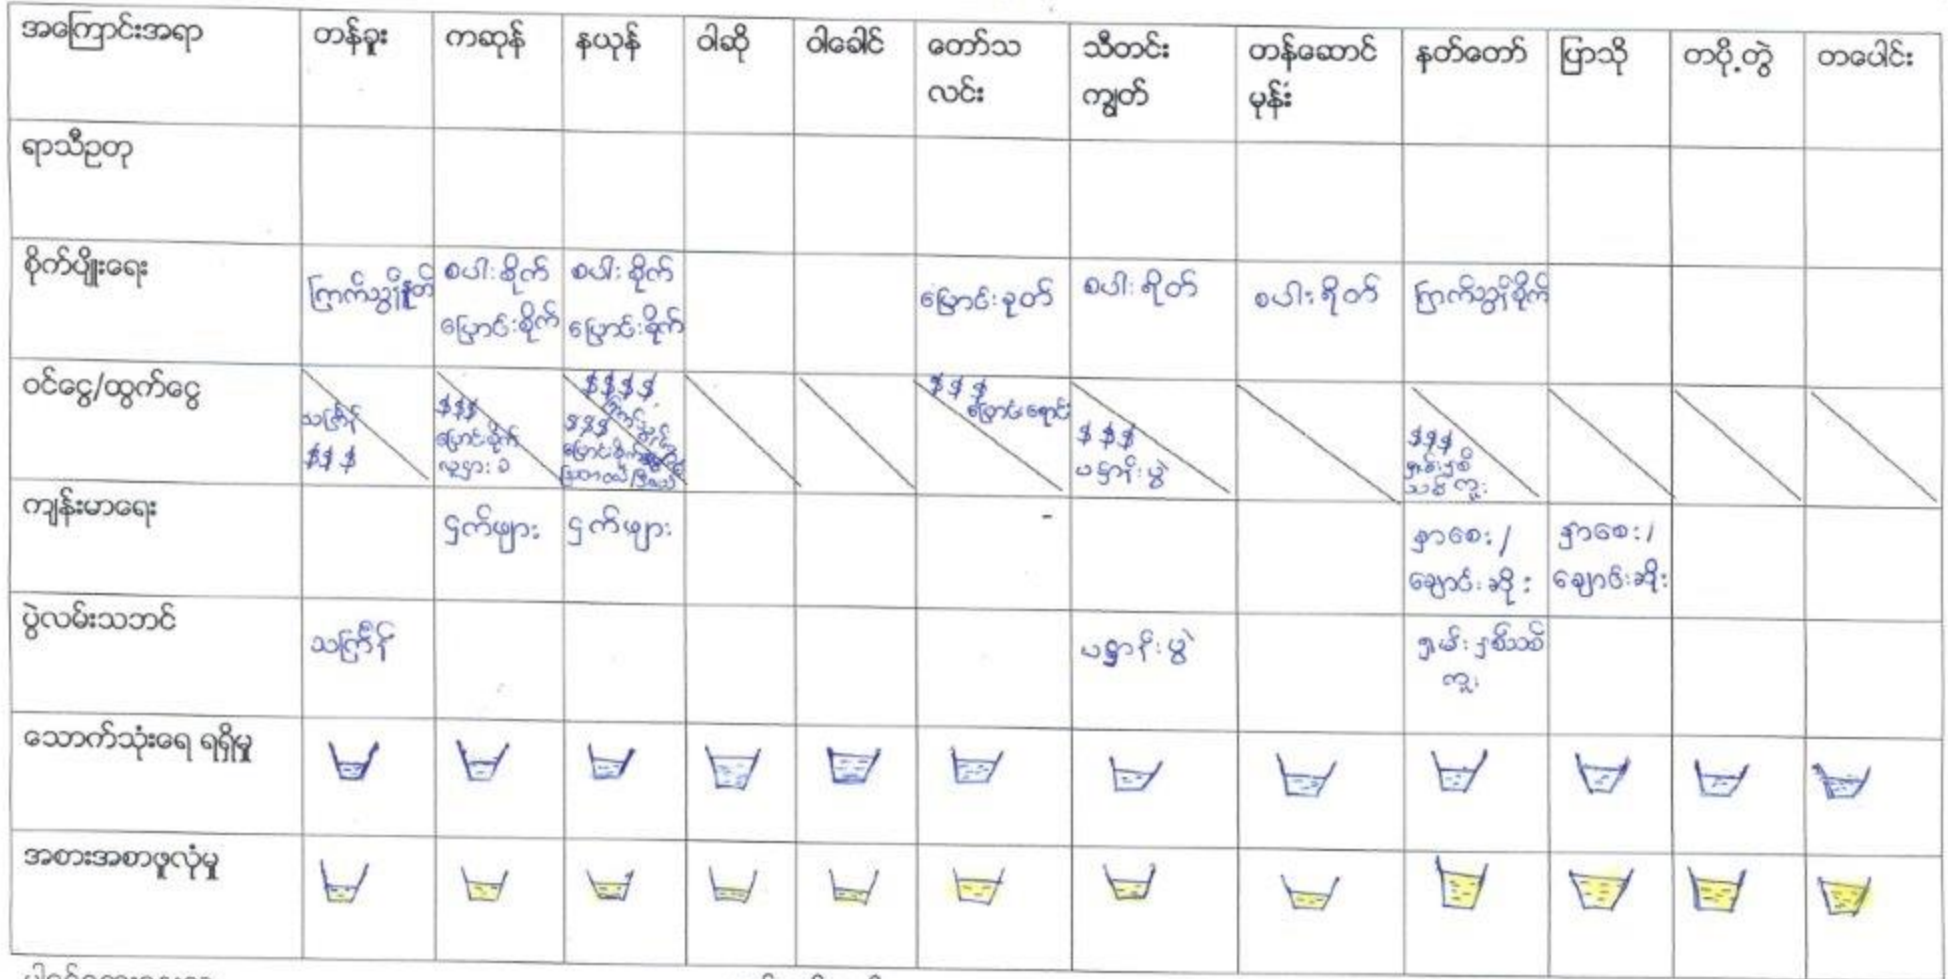 အကြောင်းအရာ တန်ခူး ကဆုန် နယုန် ဝါဆို ဝါခေါင် တော်သလင်း သီတင်းကျွတ် တန်ဆောင်မုန်း နတ်တော် ပြာသို တပို့တွဲ တပေါင်း
ရာသီဥတု
စိုက်ပျိုးရေး ကြက်သွန်နုတ် စပါးစိုက် စပါးစိုက် ပြောင်းခုတ် စပါးရိတ် စပါးရိတ် ကြက်သွန်စိုက်
ပြောင်းစိုက် ပြောင်းစိုက်
ဝင်ငွေ/ထွက်ငွေ $$$$ $$$ ပြောင်းရောင်း
သင်္ကြန် $$$ $$$ $$$ $$$
$$$ ပြောင်းစိုက် ပြောင်းစိုက် ပဋ္ဌာန်းပွဲ ရှမ်းနှစ်သစ်ကူး
လူငှားခ
ကျန်းမာရေး ငှက်ဖျား ငှက်ဖျား နှာစေး/ နှာစေး/
ချောင်းဆိုး ချောင်းဆိုး
ပွဲလမ်းသဘင် သင်္ကြန် ပဋ္ဌာန်းပွဲ ရှမ်းနှစ်သစ်
ကူး
သောက်သုံးရေ ရရှိမှု
အစားအစာဖူလုံမှု